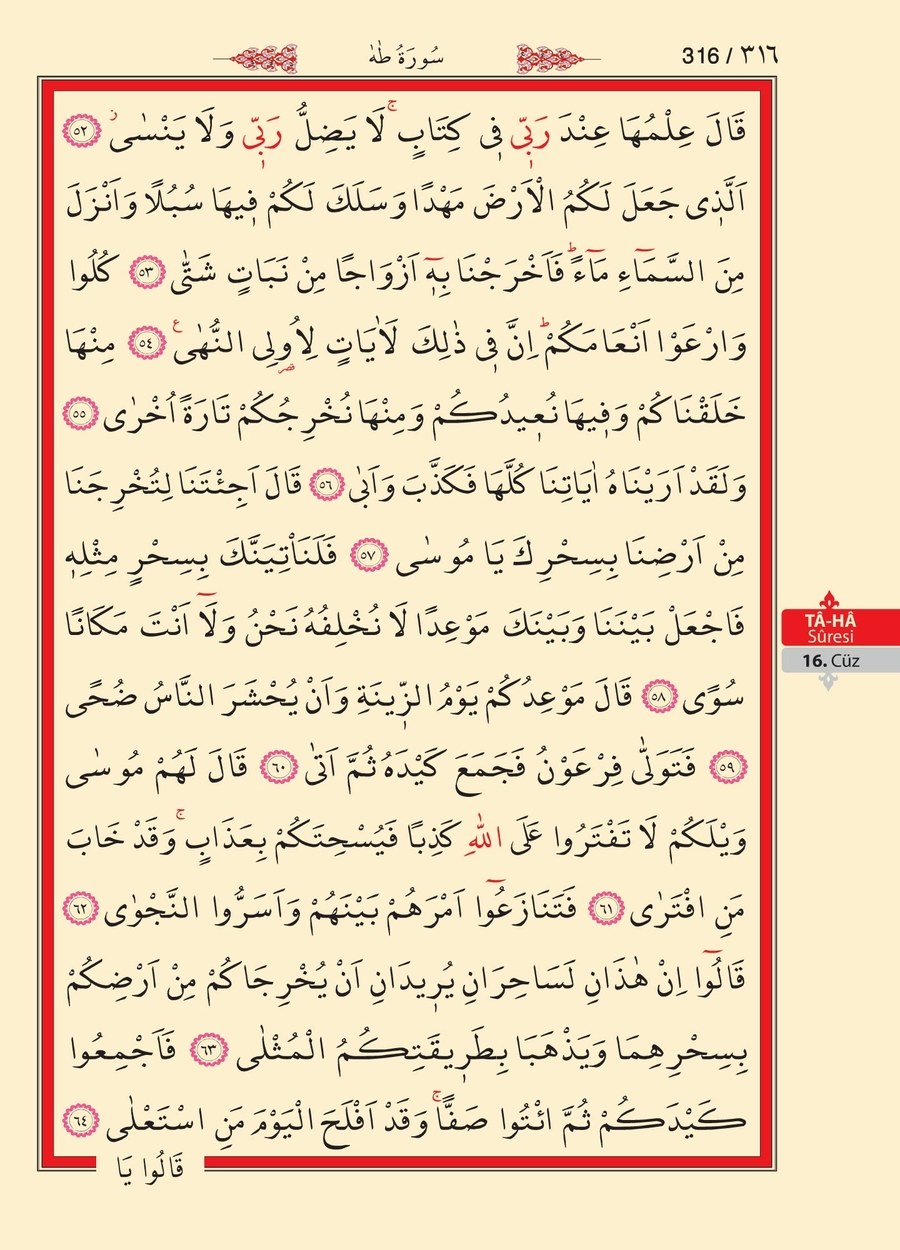 سُورَةُ طٰهٰ
316 / ٣١٦
قَالَ عِلْمُهَا عِنْدَ رَبّ۪ي ف۪ي كِتَابٍۚ لَا يَضِلُّ رَبّ۪ي وَلَا يَنْسٰىۘ ﴿٥٢﴾
اَلَّذ۪ي جَعَلَ لَكُمُ الْاَرْضَ مَهْدًا وَسَلَكَ لَكُمْ ف۪يهَا سُبُلًا وَاَنْزَلَ
مِنَ السَّمَٓاءِ مَٓاءًۜ فَاَخْرَجْنَا بِه۪ٓ اَزْوَاجًا مِنْ نَبَاتٍ شَتّٰى ﴿٥٣﴾ كُلُوا
وَارْعَوْا اَنْعَامَكُمْۜ اِنَّ ف۪ي ذٰلِكَ لَاٰيَاتٍ لِاُو۬لِي النُّهٰى۟ ﴿٥٤﴾ مِنْهَا
خَلَقْنَاكُمْ وَف۪يهَا نُع۪يدُكُمْ وَمِنْهَا نُخْرِجُكُمْ تَارَةً اُخْرٰى ﴿٥٥﴾
وَلَقَدْ اَرَيْنَاهُ اٰيَاتِنَا كُلَّهَا فَكَذَّبَ وَاَبٰى ﴿٥٦﴾ قَالَ اَجِئْتَنَا لِتُخْرِجَنَا
مِنْ اَرْضِنَا بِسِحْرِكَ يَا مُوسٰى ﴿٥٧﴾ فَلَنَأْتِيَنَّكَ بِسِحْرٍ مِثْلِه۪
فَاجْعَلْ بَيْنَنَا وَبَيْنَكَ مَوْعِدًا لَا نُخْلِفُهُ نَحْنُ وَلَٓا اَنْتَ مَكَانًا
سُوًى ﴿٥٨﴾ قَالَ مَوْعِدُكُمْ يَوْمُ الزّ۪ينَةِ وَاَنْ يُحْشَرَ النَّاسُ ضُحًى
﴿٥٩﴾ فَتَوَلّٰى فِرْعَوْنُ فَجَمَعَ كَيْدَهُ ثُمَّ اَتٰى ﴿٦٠﴾ قَالَ لَهُمْ مُوسٰى
وَيْلَكُمْ لَا تَفْتَرُوا عَلَى اللّٰهِ كَذِبًا فَيُسْحِتَكُمْ بِعَذَابٍۚ وَقَدْ خَابَ
مَنِ افْتَرٰى ﴿٦١﴾ فَتَنَازَعُٓوا اَمْرَهُمْ بَيْنَهُمْ وَاَسَرُّوا النَّجْوٰى ﴿٦٢﴾
قَالُٓوا اِنْ هٰذَانِ لَسَاحِرَانِ يُر۪يدَانِ اَنْ يُخْرِجَاكُمْ مِنْ اَرْضِكُمْ
بِسِحْرِهِمَا وَيَذْهَبَا بِطَر۪يقَتِكُمُ الْمُثْلٰى ﴿٦٣﴾ فَاَجْمِعُوا
كَيْدَكُمْ ثُمَّ ائْتُوا صَفًّاۚ وَقَدْ اَفْلَحَ الْيَوْمَ مَنِ اسْتَعْلٰى ﴿٦٤﴾
قَالُوا يَا
TÂ-HÂ
Sûresi
16. Cüz